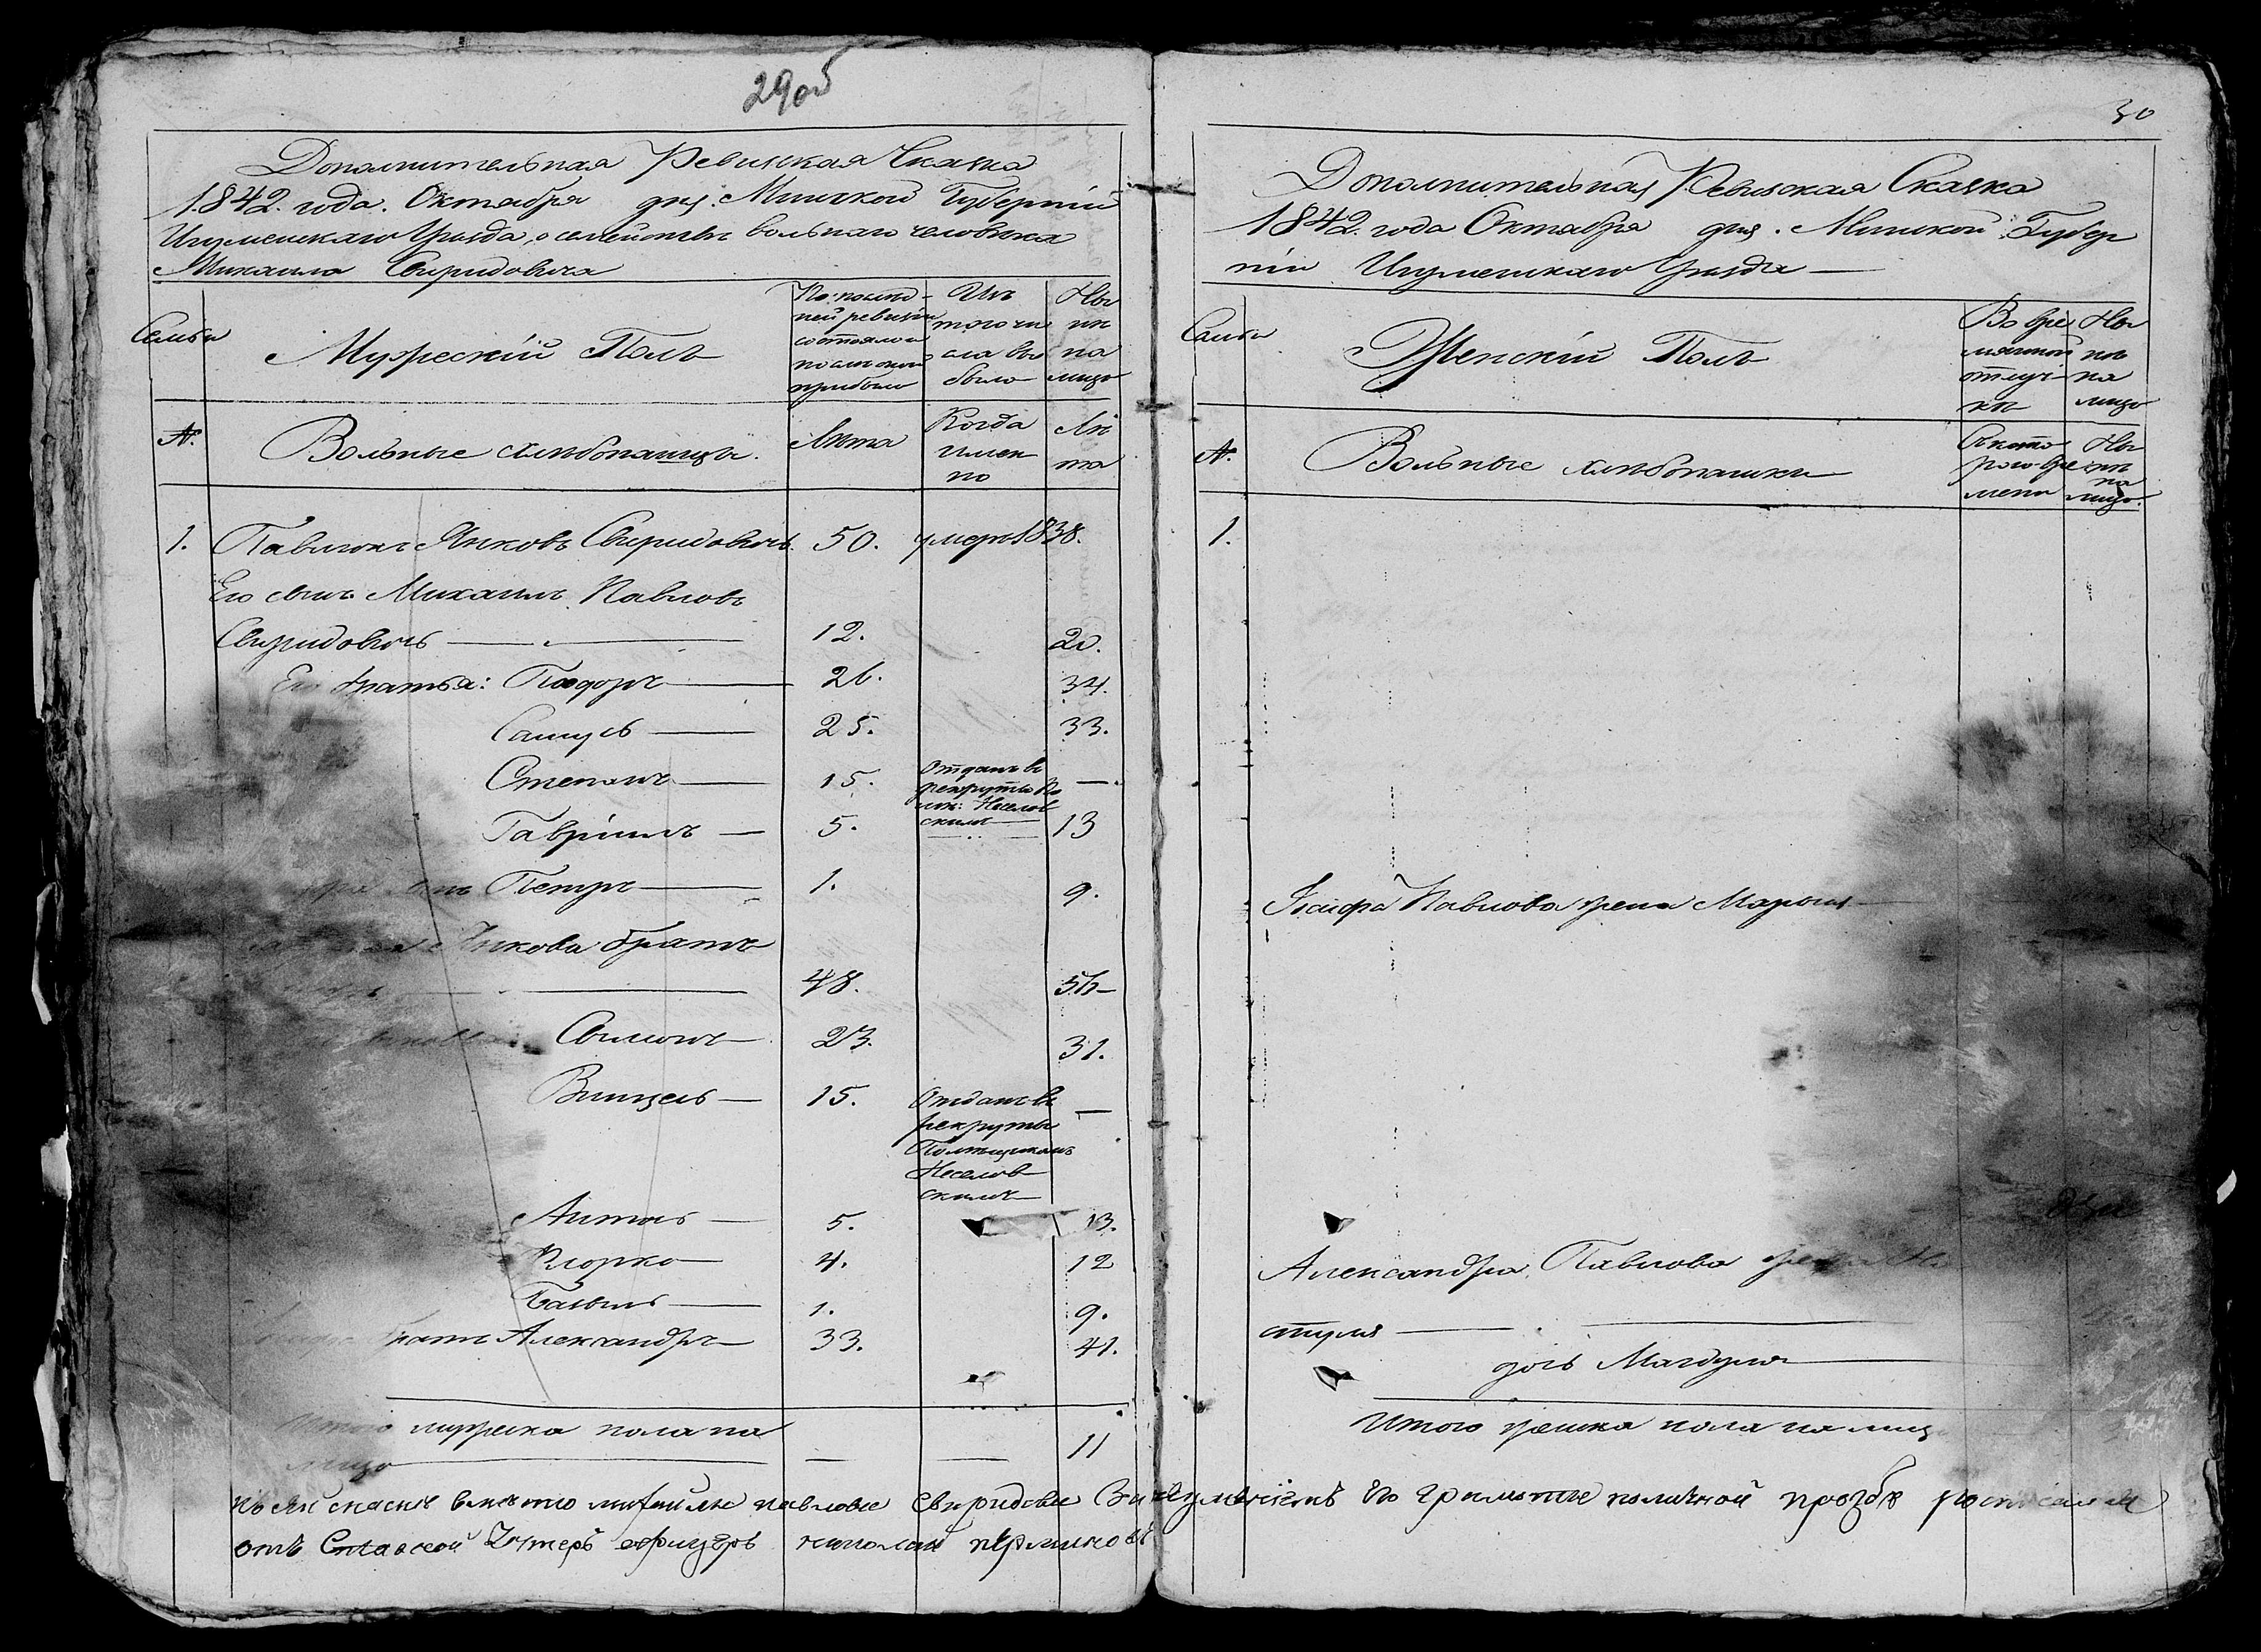 29об
Дополнительная Ревизская Сказка
1842. года. Октября дня. Минской Губерніи
Игуменскаго Уѣзда, о семействѣ вольнаго человѣка
Михаила Свиридовича
Семьи
Мужескій Полъ
По послѣд-
ней ревизіи
состояло и
послѣ оной
прибыло
Изъ
того чи
сла вы
было
Ны
нѣ
на
лицо
№.
Вольные хлѣбопашцы.
Лѣта
Когда
имен
но
Лѣ
та
1. Павлюкъ Янковъ Свиридовичъ. 50. умеръ 1838.
Его сынъ Михаилъ Павловъ
Свиридовичъ 12. 20.
Его братья: Теодоръ 26. 34.
Самусь 25. 33.
Степанъ 15. Отданъ въ рекруты По мѣщ: Неселов скимъ —.
Гавріилъ 5. 13
Петръ 1. 9.
Янкова братъ
48. 56
Семіонъ 23. 31.
Винцесь 15. Отданъ въ —
рекруты
Помѣщикомъ
Неселов
скимъ
Антось 5. 13.
Юрко 4. 12
Базыль 1. 9.
братъ Александръ 33. 41.
Итого мужеска пола на
лицо — — 11
30
Дополнительная Ревизская Сказка
1842. года Октября дня. Минской Губер
ніи Игуменскаго Уѣзда —
Семьи
Женскій Полъ
Во вре
мянной
отлуч-
кѣ
Ны
нѣ
на
лицо
№.
Вольные хлѣбопашки
Съ кото
раго вре
мени
Ны
нѣ
на
лицо.
1.
Іосифа Павлова жена Марьяна
Александра Павлова жена На
стуля
дочь Магдуля
Итого женска пола на лицо
К сей скаске вместо михайлы павлова Свиридовича за неуменіемъ его грамоте по личной прозбе росписался
отъ Ставной Унтеръ офицеръ николай